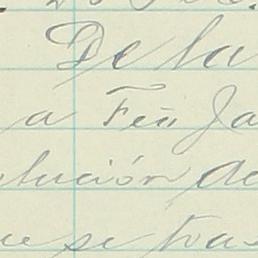 De la
á Feu Ja
lución de
ue se tras